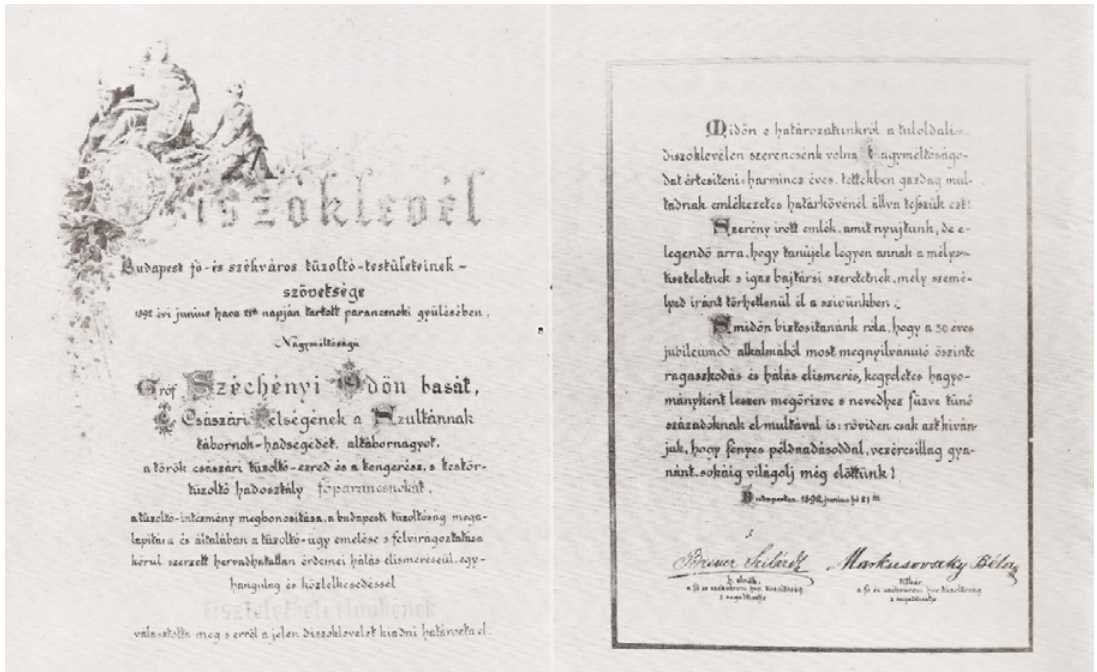 Díszoklevél
Budapest fő-és székváros tűzoltó-testületeinek-
szövetsége
1892 évi junius hava 21én napján tartott parancsnoki gyűlésében,
Nagyméltóságú
Gróf Széchényi Ödön basát,
Ő Császári Felségének a Szultánnak
tábornok-hadsegédét, altábornagyot,
a török császári tűzoltó-ezred és a tengerész, s testőr-
tűzoltó hadosztály főparancsnokát,
a tűzoltó-intézmény meghonosítása, a budapesti tűzoltóság mega-
lapítára és általában a tűzoltó-ügy emelése s felvirágoztatása
körül szerzett hervadhatatlan érdemei hálás elismeréséül, egy-
hangulag és közlelkesedéssel
tiszteletbeli elnökének
választotta meg s erről a jelen díszoklevelet kiadni határozta el.
Midőn e határozatunkról a tuloldali
díszoklevélen szerencsénk volna Nagyméltóságo-
dat értesíteni: harmincz éves, tettekben gazdag mul-
tadnak emlékezetes határkövénél állva tesszük ezt!
Szerény irott emlék, amit nyujtunk, de e-
legendő arra, hogy tanújele legyen annak a mély
tiszteletnek s igaz bajtársi szeretetnek, mely szemé-
lyed iránt törhetlenül él a szivünkben.
Amidőn biztositanánk róla, hogy a 30 éves
jubileumod alkalmából most megnyilvánuló őszinte
ragaszkodás és hálás elismerés, kegyeletes hagyo-
mányként leszen megőrizve s nevedhez fűzve tűnő
századoknak elmultával is: röviden csak azt kiván-
juk, hogy fényes példaadásoddal, vezércsillag gya-
nánt, sokáig világolj még előttünk!
Budapesten, 1892. junius hó 21én
Breuer Szilárd Markusovszky Béla
h. elnök, titkár
a fő és székvárosi hiv. tűzoltóság a fő és székvárosi hiv. tűzoltóság
I segédtisztje I segédtisztje